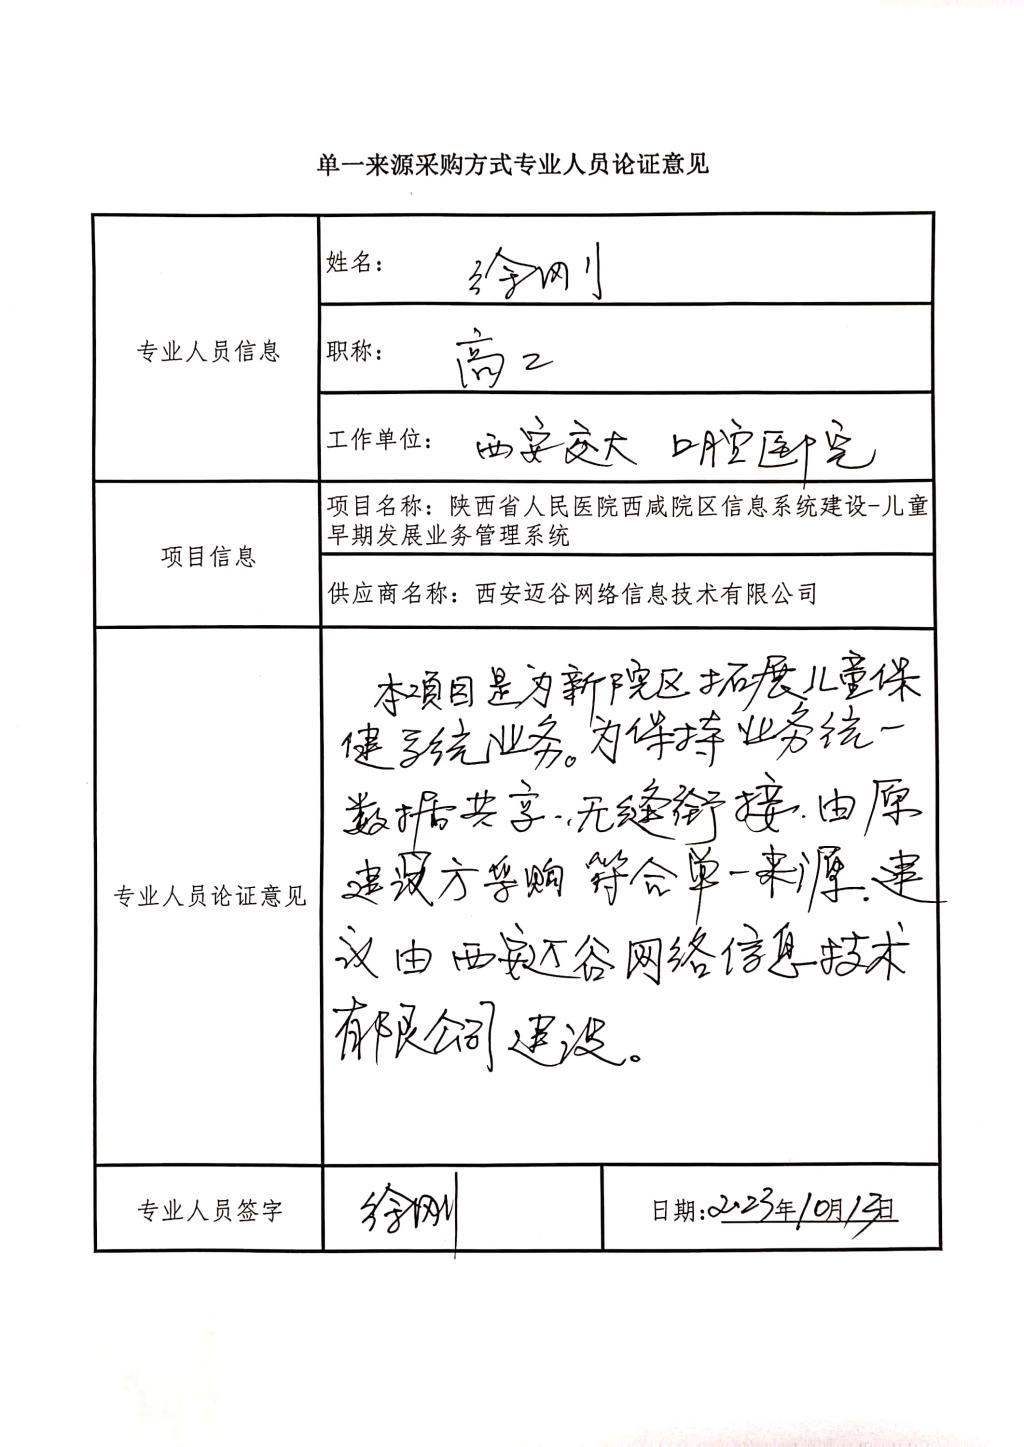 单一来源采购方式专业人员论证意见
专业人员信息
姓名： 徐刚
职称： 高工
工作单位： 西安交大 口腔医院
项目信息
项目名称：陕西省人民医院西咸院区信息系统建设-儿童
早期发展业务管理系统
供应商名称：西安迈谷网络信息技术有限公司
专业人员论证意见
本项目是为新院区拓展儿童保
健系统业务。为保持业务统一
数据共享、无缝衔接.由原
建设方采购 符合单一来源.建
议由西安迈谷网络信息技术
有限公司建设。
专业人员签字 徐刚 日期：2023年10月13日